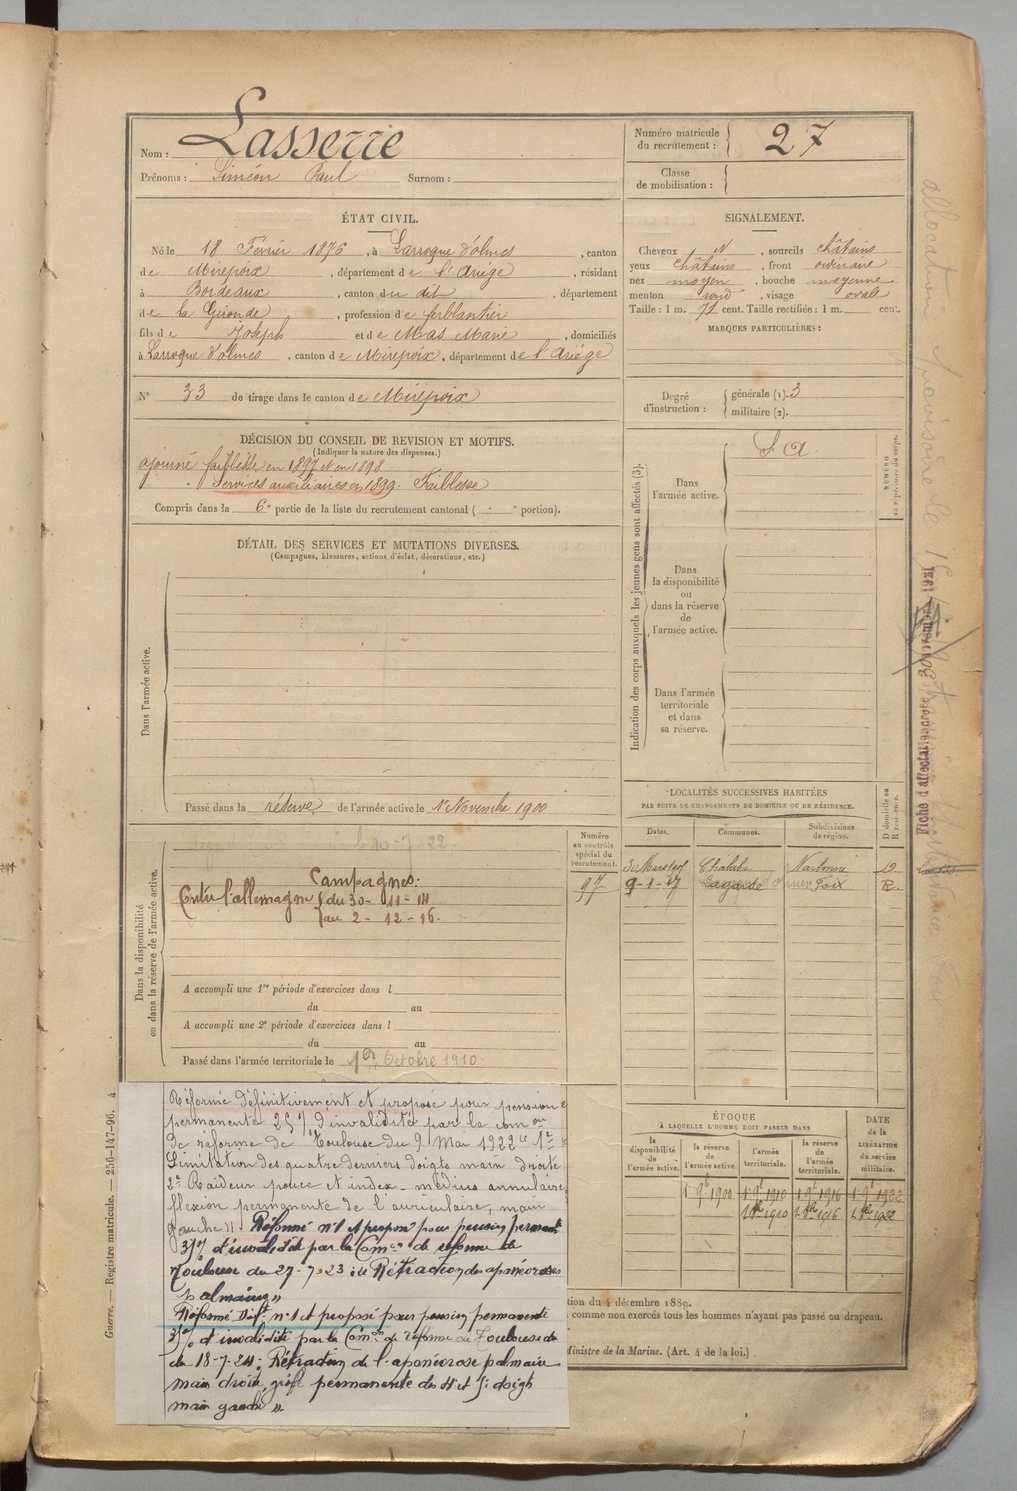 Nom : Lasserre
Prénoms : Siméon Paul Surnom :
Numéro matricule
du recrutement : 27
Classe
de mobilisation :
ÉTAT CIVIL.
Né le 18 Février 1876, à Larroque d'olmes, canton
de Mirepoix, département de l'Ariège, résidant
à Bordeaux, canton du dit, département
de la Gironde, profession de ferblantier
fils de Joseph et de Mas Marie, domiciliés
à Larroque d'olmes, canton de Mirepoix, département de l'Ariège
N° 33 de tirage dans le canton de Mirepoix
SIGNALEMENT.
Cheveux N, sourcils châtains
yeux châtains, front ordinaire
nez moyen, bouche moyenne
menton rond, visage ovale
Taille : 1 m. 72 cent. Taille rectifiée : 1 m. cent.
MARQUES PARTICULIÈRES :
Degré
d'instruction :
générale (1). 3
militaire (2).
DÉCISION DU CONSEIL DE REVISION ET MOTIFS.
(Indiquer la nature des dispenses.)
ajourné faiblesse en 1897 et en 1898
Services auxiliaires en 1899. Faiblesse
Compris dans la 6e partie de la liste du recrutement cantonal ( e portion).
DÉTAIL DES SERVICES ET MUTATIONS DIVERSES.
(Campagnes, blessures, actions d'éclat, décorations, etc.)
Dans l'armée active.
Passé dans la réserve de l'armée active le 1er Novembre 1900
Indication des corps auxquels les jeunes gens sont affectés (3).
Dans
l'armée active.
S A
NUMÉRO
Dans
la disponibilité
ou
dans la réserve
de
l'armée active.
Dans l'armée
territoriale
et dans
sa réserve.
Numéro
au contrôle
spécial du
recrutement.
97
Dans la disponibilité
ou dans la réserve de l'armée active.
Campagnes :
Contre l'allemagne du 30-11-14
au 2-12-16.
A accompli une 1re période d'exercices dans l
du au
A accompli une 2e période d'exercices dans l
du au
Passé dans l'armée territoriale le 1er Octobre 1910
LOCALITÉS SUCCESSIVES HABITÉES
PAR SUITE DE CHANGEMENTS DE DOMICILE OU DE RÉSIDENCE.
Dates. Communes. Subdivisions
de région. D domicile ou
R résidence.
Chalabre Narbonne D
9-1-17 Foix R.
Réformé définitivement et proposé pour pension
permanente 25% d'invalidité par la com on
de réforme de Toulouse du 9 Mai 1922 "1°
Limitation des quatre derniers doigts main droite
2° Raideur pouce et index - médius annulaire
flexion permanente de l'auriculaire, main
gauche". Réformé n°1 et proposé pour pension permanente
35% d'invalidité par la Com on de réforme de
Toulouse du 27-7-23 : Rétraction des aponévroses
palmaires"
Réformé Déft n°1 et proposé pour pension permanente
35% d'invalidité par la Com on de réforme de Toulouse du
du 18-7-24 : Rétraction de l'aponévrose palmaire
main droite, griffe permanente des 4e et 5e doigts
main gauche"
ÉPOQUE
À LAQUELLE L'HOMME DOIT PASSER DANS
la
disponibilité
de
l'armée active.
la réserve
de
l'armée active.
l'armée
territoriale.
la réserve
de
l'armée
territoriale.
DATE
de la
LIBÉRATION
du service
militaire.
1er 9bre 1900 1er 9bre 1910 1er 9bre 1916 1er 9bre 1922
1er 8bre 1910 1er 8bre 1916 1er 8bre 1922
tion du 4 décembre 1889.
comme non exercés tous les hommes n'ayant pas passé au drapeau.
Ministre de la Marine. (Art. 4 de la loi.)
Guerre. — Registre matricule. — 256-147-96. 4
allocation provisoire
Fiche d'affectation créée Novembre 1921